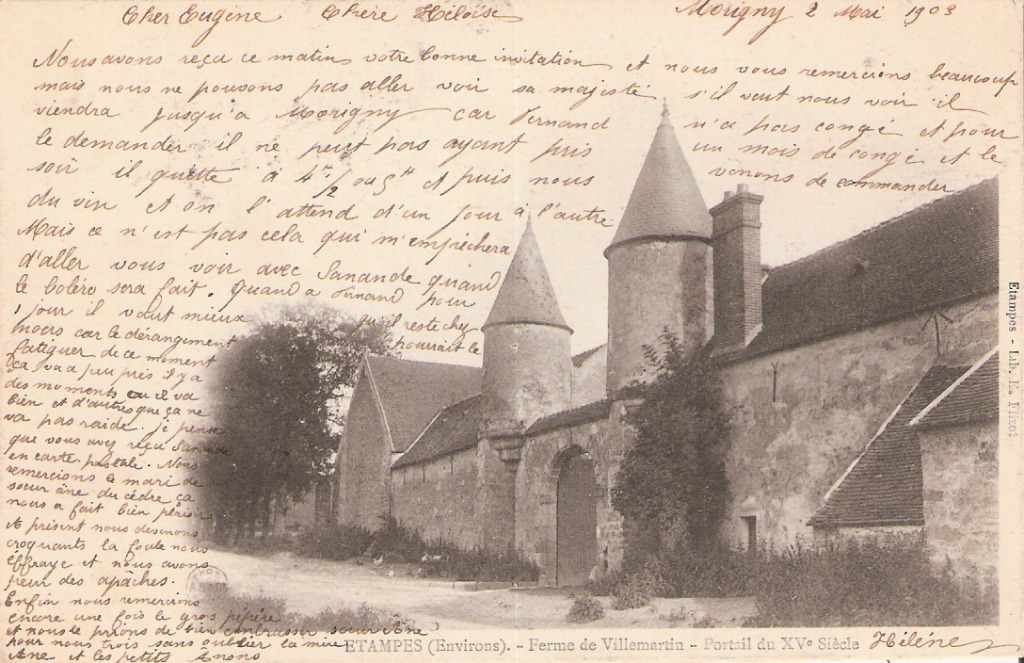 Cher Eugène Chère Héloïse Morigny 2 Mai 1903
Nous avons reçu ce matin votre bonne invitation et nous vous remercions beaucoup
mais nous ne pouvons pas aller voir sa majesté s'il veut nous voir il
viendra jusqu'à Morigny car Fernand n'a pas congé et pour
le demander il ne peut pas ayant pris un mois de congé et le
soir il quitte à 4h 1/2 ou 5h et puis nous venons de commander
du vin et on l'attend d'un jour à l'autre
Mais ce n'est pas cela qui m'empêchera
d'aller vous voir avec Sanande quand
le boléro sera fait. Quand a Fernand pour
1 jour il vaut mieux qu'il reste chez
Moers car le dérangement pourrait le
fatiguer de ce moment
ça va à peu près il y a
des moments ou il va
bien et d'autres que ça ne
va pas raide. je pense
que vous avez reçu Sanande
en carte-postale. Nous
remercions à mari de
sœur âne du cèdre ça
nous a fait bien plaisir
A présent nous devenons
croquants la foule nous
éffraye et nous avons
peur des apâches.
Enfin nous remercions
encore une fois le gros pépère
et nous le prions de bien embrasser sœur Âne
pour nous trois sans oublier la mère
Ane et les petits Ânons
Hélène
ETAMPES (Environs). - Ferme de Villemartin - Portail du XVe Siècle
Etampes - Lib. E. Flizot